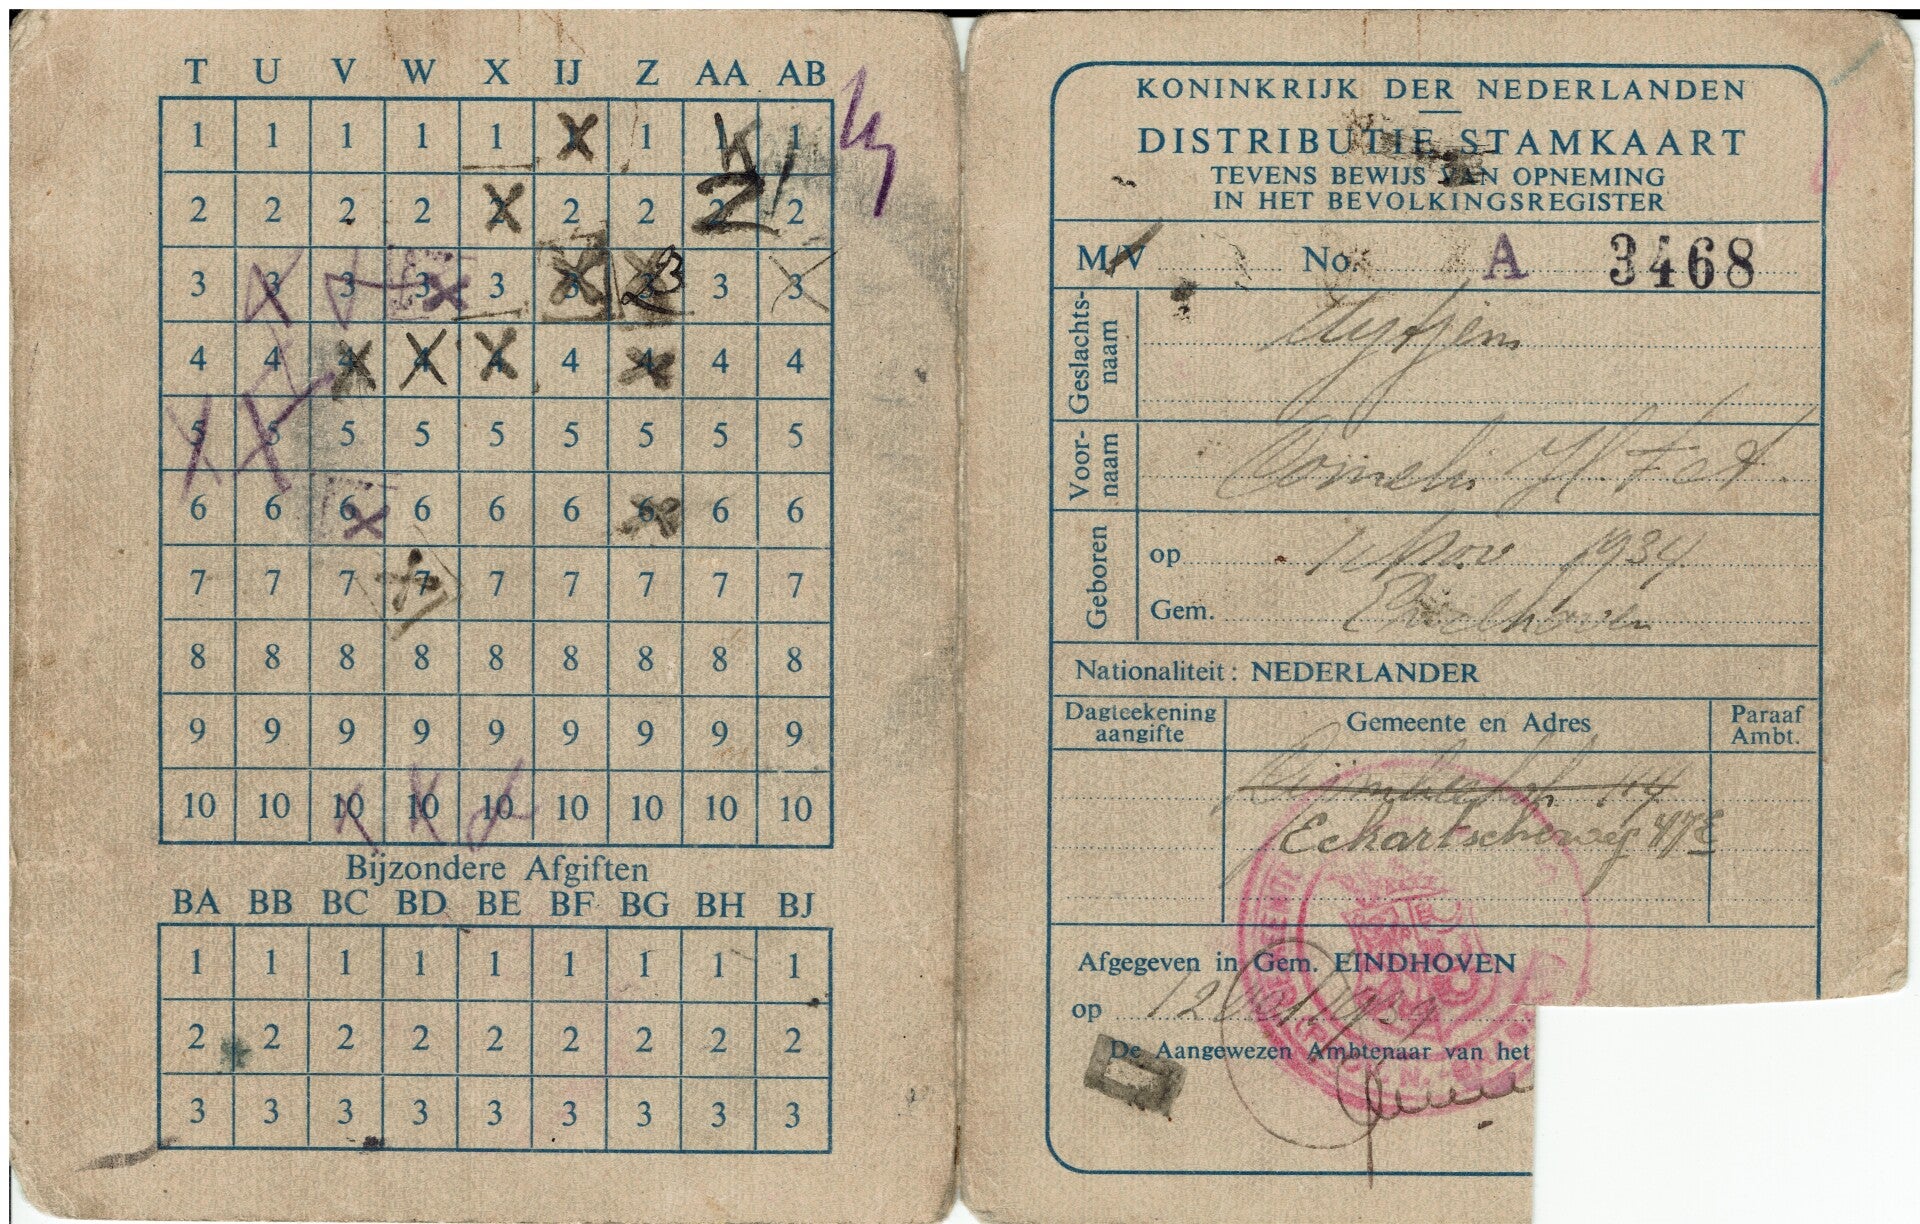 T U V W X IJ Z AA AB
1 1 1 1 1 1 1 1 1
2 2 2 2 2 2 2 2 2
3 3 3 3 3 3 3 3 3
4 4 4 4 4 4 4 4 4
5 5 5 5 5 5 5 5 5
6 6 6 6 6 6 6 6 6
7 7 7 7 7 7 7 7 7
8 8 8 8 8 8 8 8 8
9 9 9 9 9 9 9 9 9
10 10 10 10 10 10 10 10 10
Bijzondere Afgiften
BA BB BC BD BE BF BG BH BJ
1 1 1 1 1 1 1 1 1
2 2 2 2 2 2 2 2 2
3 3 3 3 3 3 3 3 3
KONINKRIJK DER NEDERLANDEN
DISTRIBUTIE STAMKAART
TEVENS BEWIJS VAN OPNEMING
IN HET BEVOLKINGSREGISTER
M/V No. A 3468
Geslachts-
naam
Voor-
naam Cornelis
Geboren
op Nov 1934
Gem. Eindhoven
Nationaliteit: NEDERLANDER
Dagteekening
aangifte
Gemeente en Adres
Paraaf
Ambt.
Eckartscheweg
Afgegeven in Gem. EINDHOVEN
op 12 1939
De Aangewezen Ambtenaar van het